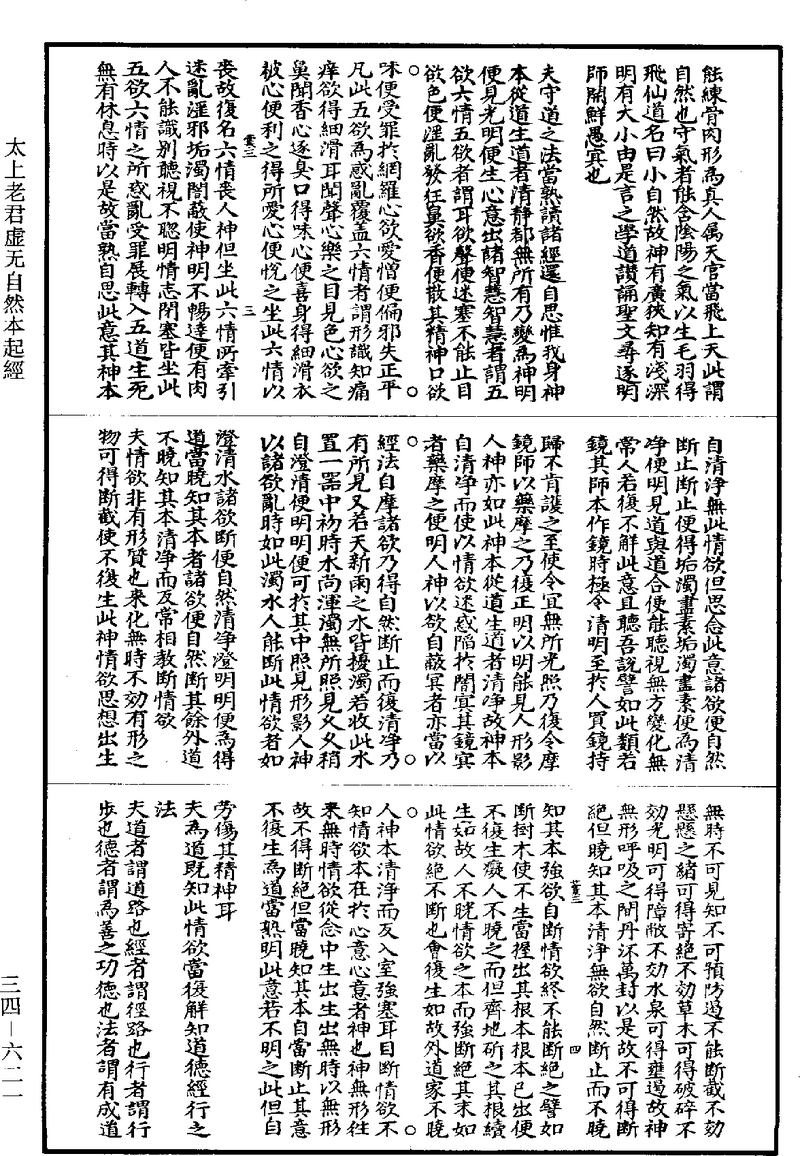 能練骨肉形為真人属天官當飛上天此謂
自然也守氣者能含陰陽之氣以生毛羽得
飛仙道名曰小自然故神有廣狹知有淺深
明有大小由是言之學道讃誦聖文尋逐明
師開解愚冥也
夫守道之法當熟讀諸經還自思惟我身神
本從道生道者清静都無所有乃變為神明
便見光明便生心意出諸智慧智慧者謂五
欲六情五欲者謂耳欲聲便迷塞不能止目
欲色便淫亂發狂鼻欲香便散其精神口欲
味便受罪於網羅心欲愛憎便偏邪失正平
凡此五欲為惑亂覆盖六情者謂形識知痛
痒欲得細滑耳聞聲心樂之目見色心欲之
鼻聞香心逐臭口得味心便喜身得細滑衣
被心便利之得所愛心便悅之坐此六情以
喪故復名六情喪人神但坐此六情所牽引
迷亂淫邪垢濁闇蔽使神明不暢達便有肉
人不能識別聽視不聡明情志閉塞皆坐此
五欲六情之所惑亂受罪展轉入五道生死
無有休息時以是故當熟自思此意其神本
自清淨無此情欲但思念此意諸欲便自然
断止断止便得垢濁盡索垢濁盡索便為清
净便明見道與道合便能聽視無方變化無
常人若復不解此意且聽吾說譬如此類若
鏡其師本作鏡時極令清明至於人買鏡持
歸不肯護之至使令冥無所光照乃復令摩
鏡師以藥摩之乃復正明以明能見人形影
人神亦如此神本從道生道者清净故神本
自清净而使以情欲迷惑陷於闇冥其鏡冥
者藥摩之便明人神以欲自蔽冥者亦當以
經法自摩諸欲乃得自然断止而復清净乃
有所見又若天新雨之水皆擾濁若收此水
置一器中初時水尚渾濁無所照見乆乆稍
自澄清便明明便可於其中照見形影人神
以諸欲亂時如此濁水人能断此情欲者如
澄清水諸欲断便自然清净澄明明便為得
道當曉知其本者諸欲便自然断其餘外道
不曉知其本清净而反常相教断情欲
夫情欲非有形質也来化無時不効有形之
物可得断截使不復生此神情欲思想出生
無時不可見知不可預防遏不能断截不効
懸懸之緒可得寄絕不効草木可得破碎不
効光明可得障蔽不効水泉可得壅遏故神
無形呼吸之間丹沐萬封以是故不可得断
絕但曉知其本清淨無欲自然断止而不曉
知其本強欲自断情欲終不能断絕之譬如
断樹木使不生當掘出其根本根本已出便
不復生癡人不曉之而但齊地斫之其根續
生如故人不曉情欲之本而強断絕其末如
此情欲絕不断也會復生如故外道家不曉
人神本清淨而反入室強塞耳目断情欲不
知情欲本在於心意心意者神也神無形徃
来無時情欲從念中生出生出無時以無形
故不得断絕但當曉知其本自當断止其意
不復生為道當熟明此意若不明之此但自
劳傷其精神耳
夫為道既知此情欲當復解知道德經行之
法
夫道者謂道路也經者謂徑路也行者謂行
步也德者謂為善之功徳也法者謂有成道
業三
三
業三
四
太上老君虛无自然本起經
三四－六二一